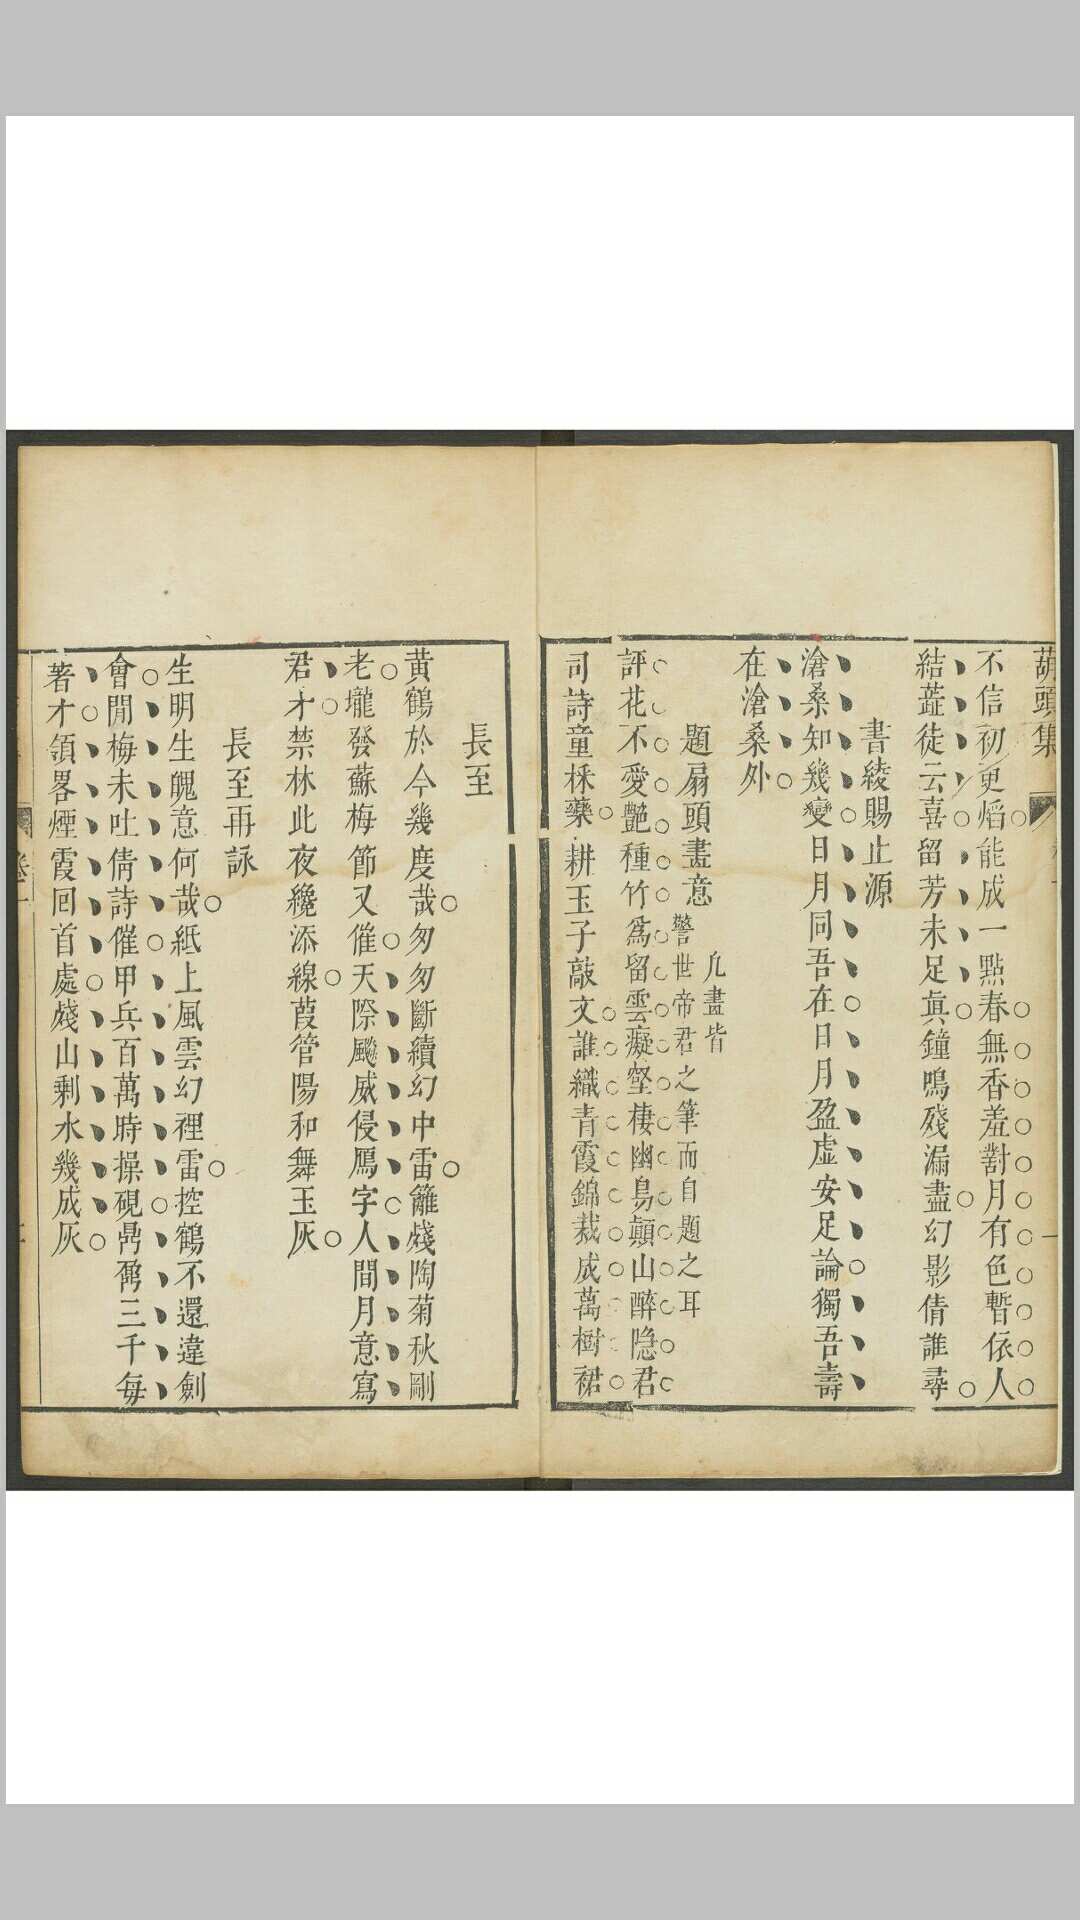 葫頭集
不信初更熖能成一點春無香羞對月有色暫依人
結蕋徒云喜留芳未足眞鐘鳴殘漏盡幻影倩誰尋
書綾賜止源
滄桑知幾變日月同吾在日月盈虛安足論獨吾壽
在滄桑外
題扇頭畫意
凡畫皆
警世帝君之筆而自題之耳
評花不愛艷種竹為留雲癡壑棲幽鳥顛山醉隐君
司詩童採藥耕玉子敲文誰織青霞錦裁成萬樹裙
長至
黃鶴於今幾度哉匆匆斷續幻中雷籬殘陶菊秋剛
老壠發蘇梅節又催天際颷威侵鴈字人間月意寫
君才禁林此夜纔添線葭管陽和舞玉灰
長至再詠
生明生魄意何哉紙上風雲幻裡雷控鶴不還違劍
會閒梅未吐倩詩催甲兵百萬時操硯鼎鼐三千每
著才領畧煙霞回首處殘山剩水幾成灰